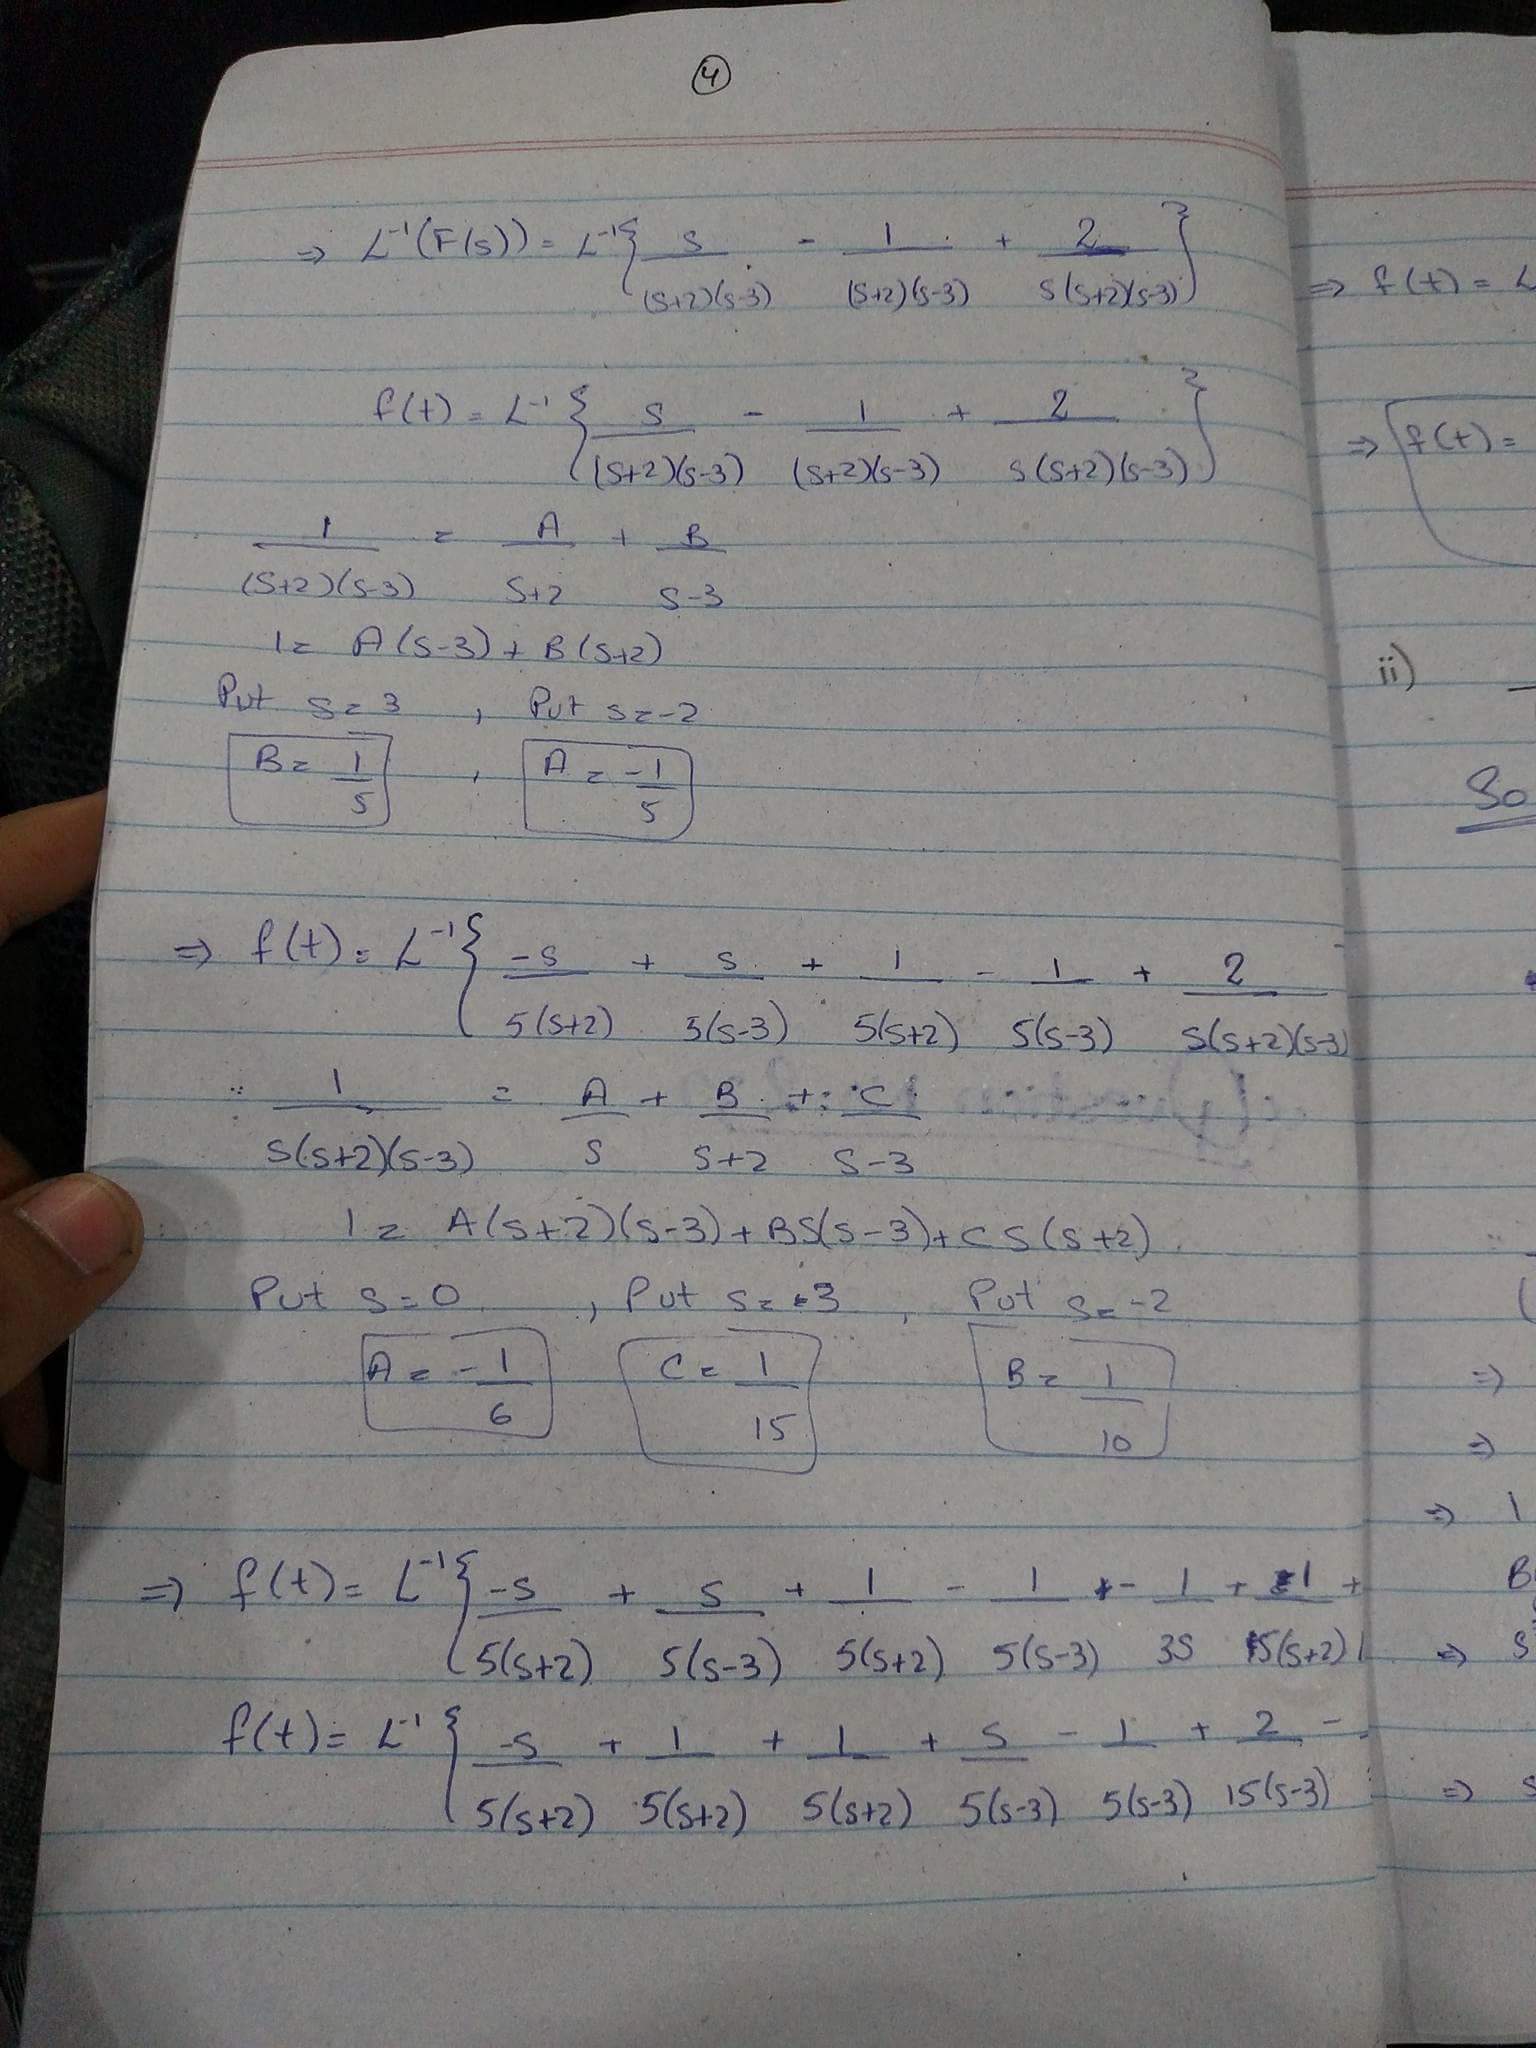 4
⇒ L⁻¹(F(s)) = L⁻¹{ s/((s+2)(s-3)) - 1/((s+2)(s-3)) + 2/(s(s+2)(s-3)) }
f(t) = L⁻¹{ s/((s+2)(s-3)) - 1/((s+2)(s-3)) + 2/(s(s+2)(s-3)) }
1/((s+2)(s-3)) = A/(s+2) + B/(s-3)
1 = A(s-3) + B(s+2)
Put s=3 , Put s=-2
B = 1/5 , A = -1/5
⇒ f(t) = L⁻¹{ -s/(5(s+2)) + s/(5(s-3)) + 1/(5(s+2)) - 1/(5(s-3)) + 2/(s(s+2)(s-3))
∵ 1/(s(s+2)(s-3)) = A/s + B/(s+2) + C/(s-3)
1 = A(s+2)(s-3) + BS(s-3) + CS(s+2)
Put s=0 , Put s=3 , Put s=-2
A = -1/6 C = 1/15 B = 1/10
⇒ f(t) = L⁻¹{ -s/(5(s+2)) + s/(5(s-3)) + 1/(5(s+2)) - 1/(5(s-3)) - 1/3s + 1/(5(s+2)) +
f(t) = L⁻¹{ -s/(5(s+2)) + 1/(5(s+2)) + 1/(5(s+2)) + s/(5(s-3)) - 1/(5(s-3)) + 2/(15(s-3)) -
⇒ f(t) = L
⇒ f(t) =
ii)
So
⇒
⇒
⇒ 1
⇒ s
⇒ s